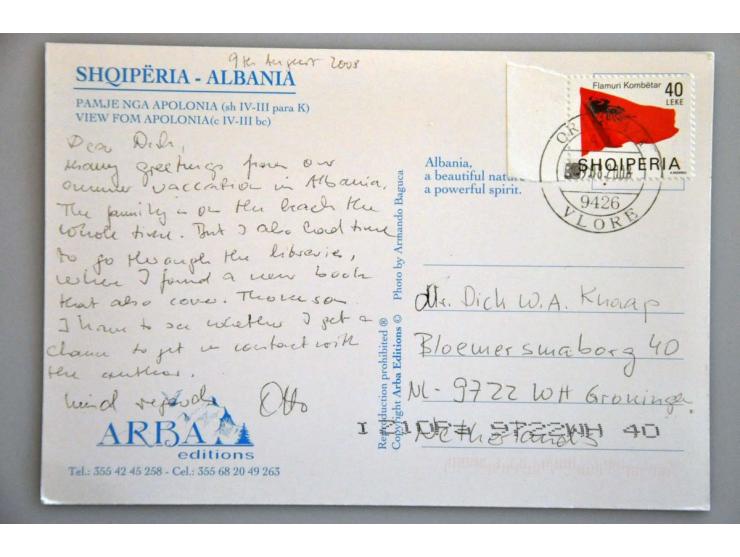 9th August 2008
SHQIPËRIA - ALBANIA
PAMJE NGA APOLONIA (sh IV-III para K)
VIEW FOM APOLONIA(c IV-III bc)
Dear Dick,
Many greetings from our
summer vaccation in Albania.
The family is on the beach the
whole time. But I also had time
to go through the libraries,
where I found a new book
that also cover. Thomson
I have to see whether I get a
chance to get in contact with
the author.
kind regards Otto
ARBA
editions
Tel.: 355 42 45 258 - Cel.: 355 68 20 49 263
Reproduction prohibited ®
Copyright Arba Editions © Photo by Armando Baguca
Albania,
a beautiful nature
a powerful spirit.
Flamuri Kombëtar
40
LEKE
SHQIPERIA
9426
VLORE
Mr. Dick W.A. Knaap
Bloemersmaborg 40
NL-9722 WH Groningen
Netherlands
9722WH 40